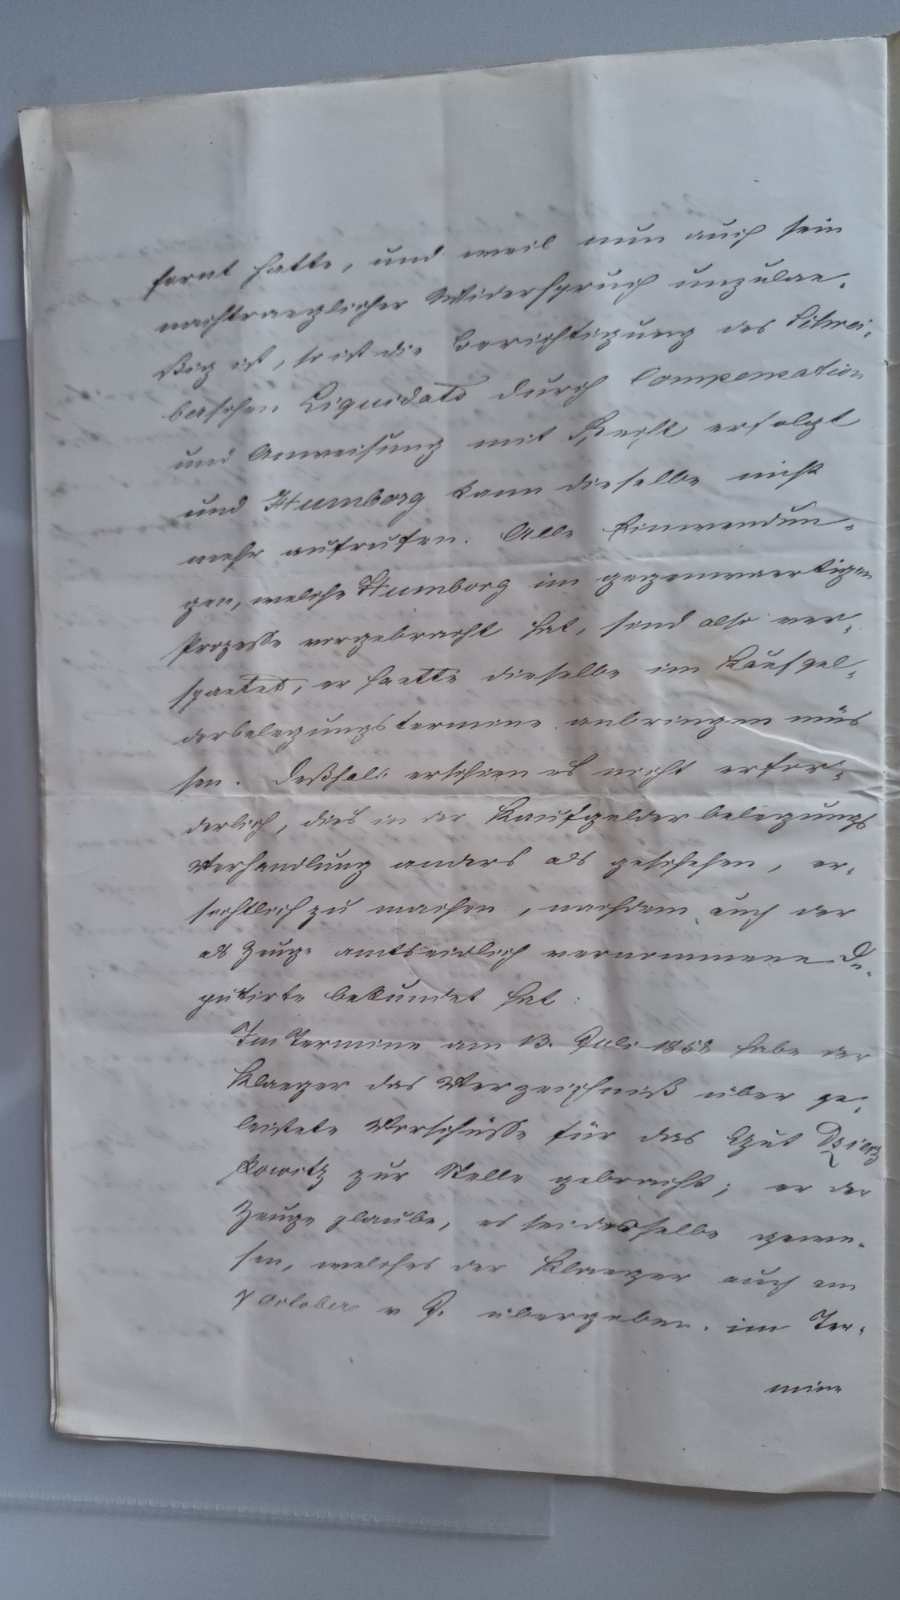 fernt hatte, und weil nun auch sein
nachtraeglicher Widerspruch unzulae-
ßig ist, so ist die Berichtigung des Schrei-
berschen Liquidats durch Compensation
und Anweisung mit Recht erfolgt
und Humborg kann dieselbe nicht
mehr aufrufen. Alle Einwendun-
gen, welche Humborg im gegenwaertigen
Prozesse vorgebracht hat, sind also ver-
spaetet, er haette dieselbe im Kaufgel-
derbelegungstermine anbringen müs
sen. Deßhalb erschien es nicht erfor-
derlich, dies in der Kaufgelderbelegungs
Verhandlung anders als geschehen, er-
sichtlich zu machen, nachdem auch der
als Zeuge amtseidlich vernommene De-
putirte bekundet hat:
Im Termine am 13. Juli 1858 habe der
Klaeger das Verzeichniß über ge-
leistete Vorschüsse für das Gut Dzierz
kowitz zur Stelle gebracht; er der
Zeuge glaube, es sei dasselbe gewe-
sen, welches der Klaeger auch am
7 October v J. übergeben. im Ter-
mine